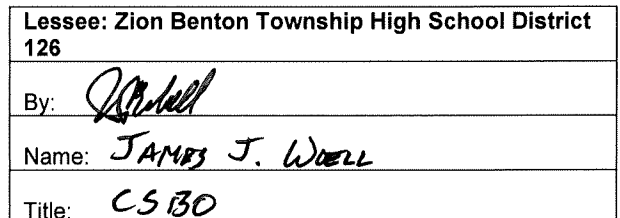 Lessee: Zion Benton Township High School District
126
By:
Name: JAMES J. WOELL
Title: CSBO